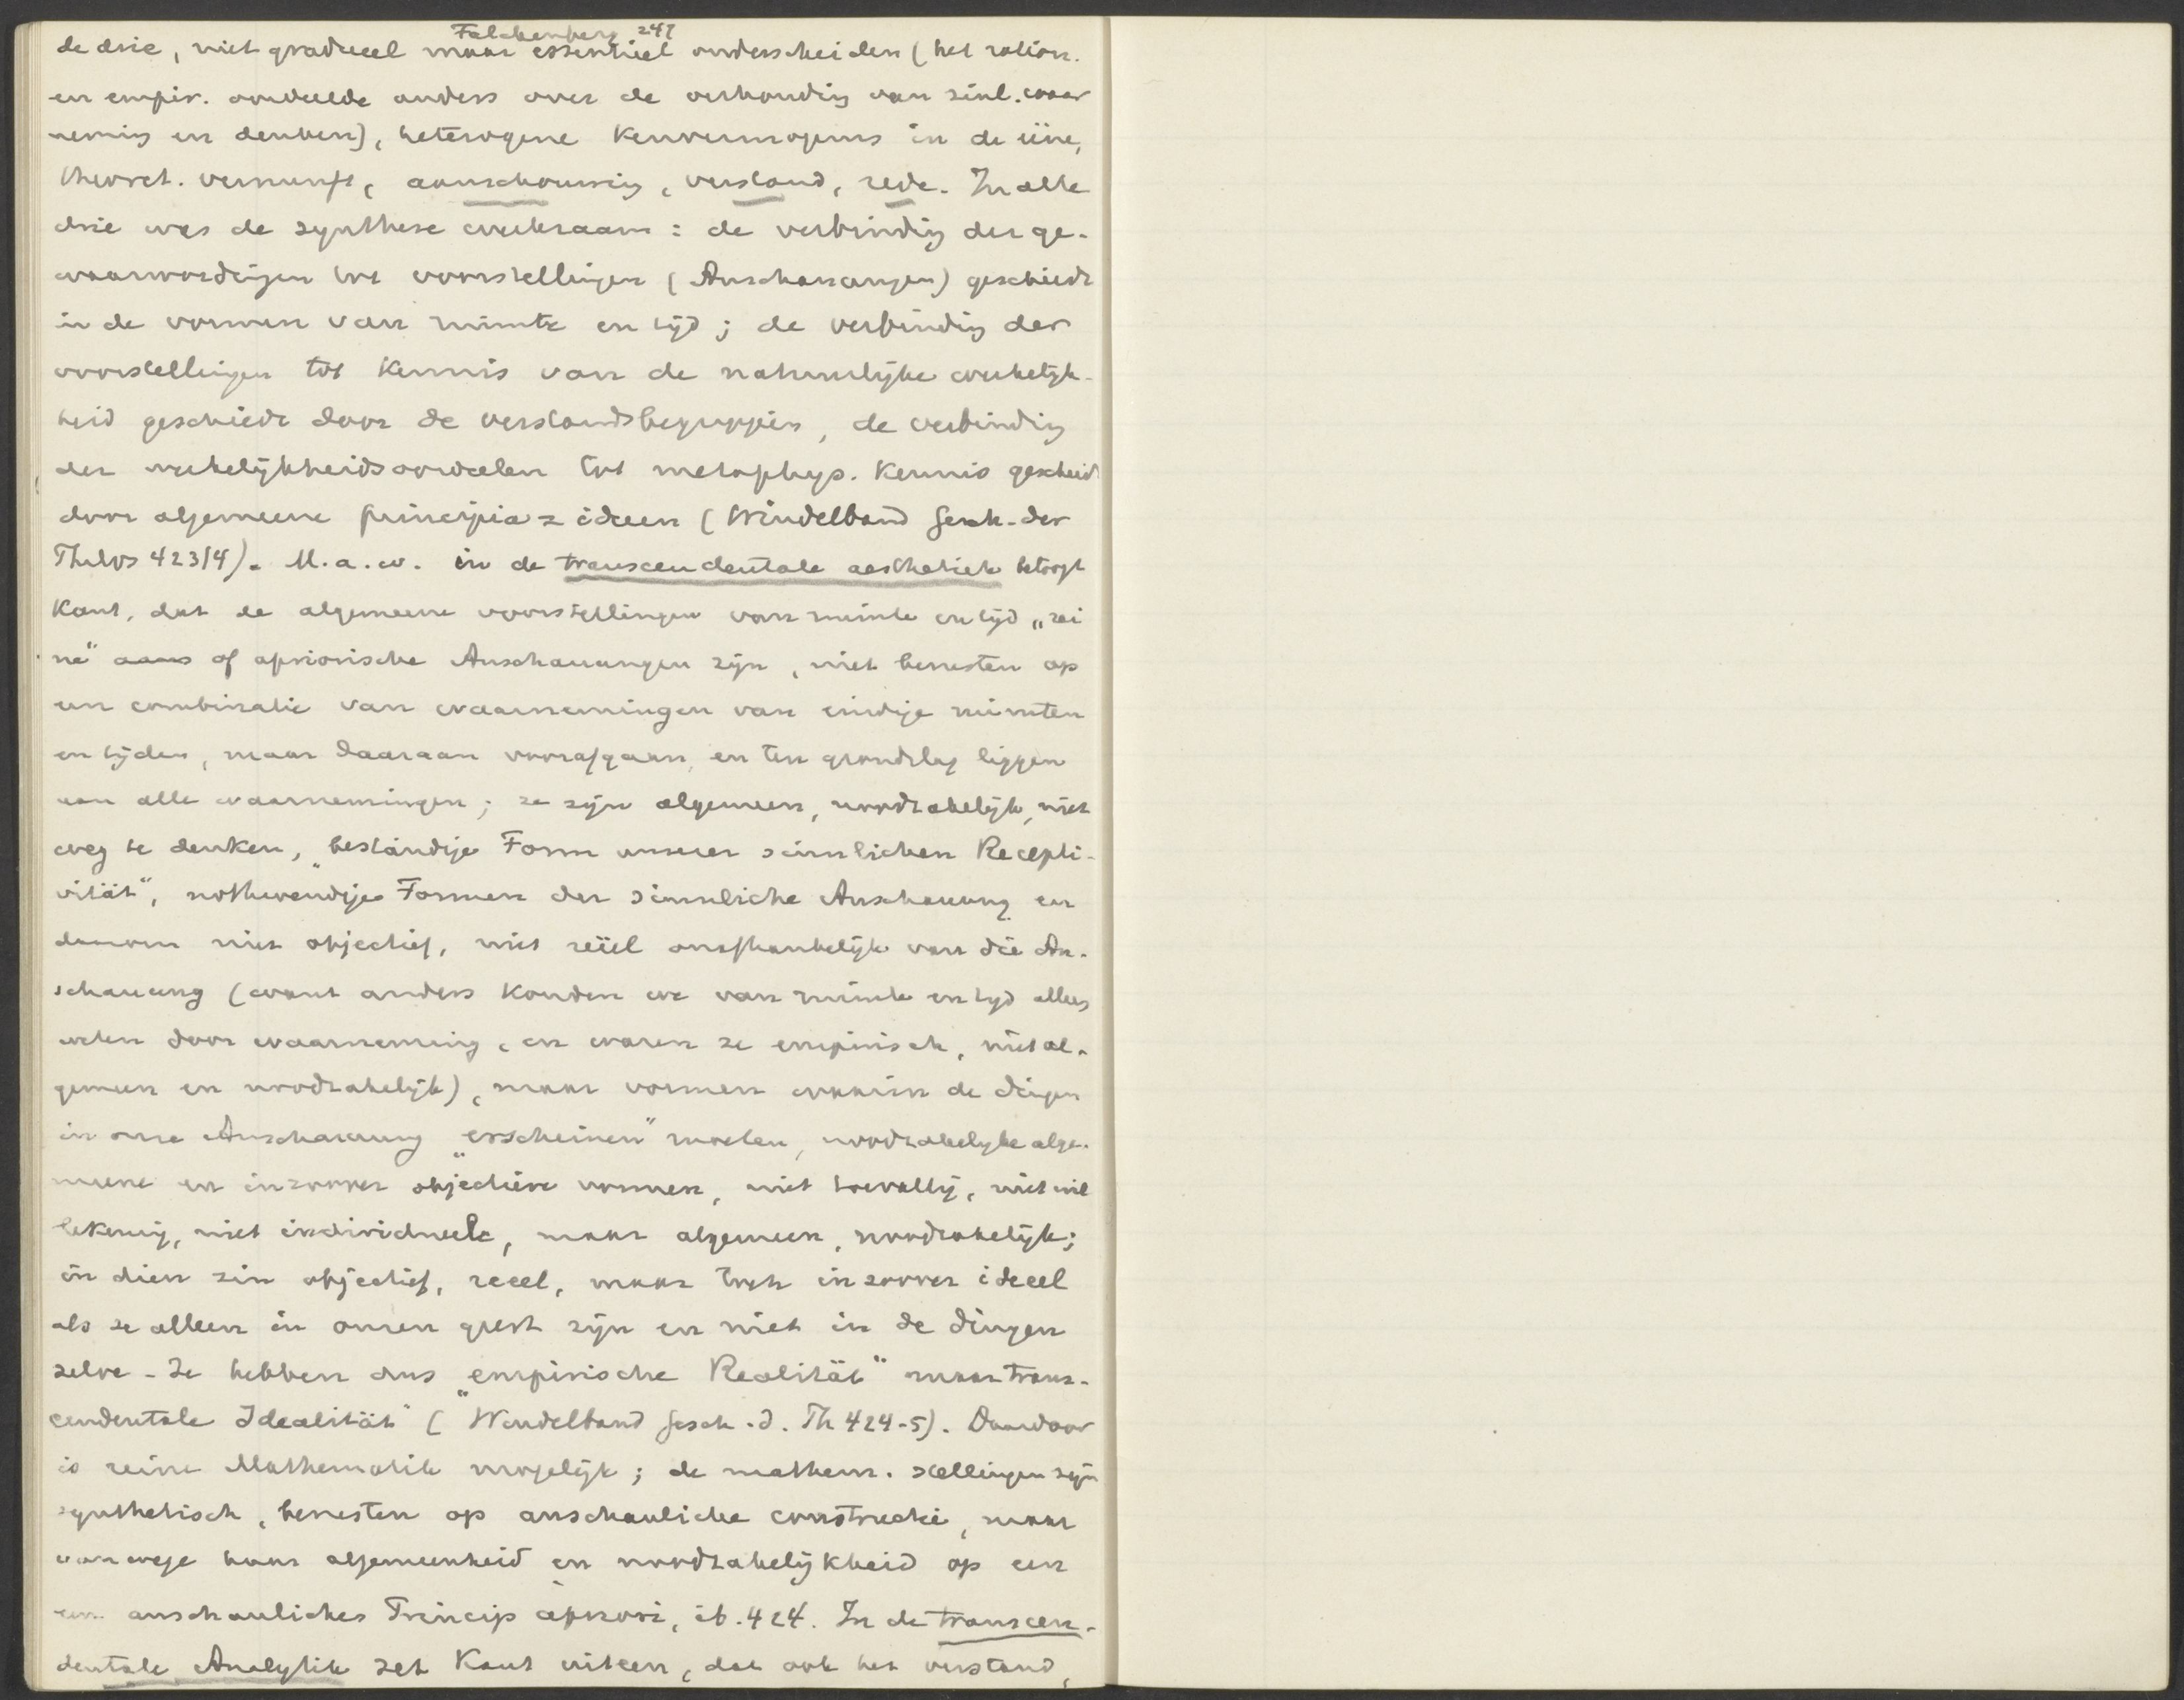 Falckenberg 247
de drie, niet gradueel maar essentieel onderscheiden (het ration.
en empir. oordeelde anders over de verhouding van zinl. waar
neming en denken), heterogene Kenvermogens in de eene,
theoret. vernunft, aanschouwing, verstand, rede. In alle
drie was de synthese werkzaam: de verbinding der ge-
waarwordingen tot voorstellingen (Anschauungen) geschiedt
in de vormen van ruimte en tijd; de verbinding der
voorstellingen tot Kennis van de natuurlijke werkelijk-
heid geschiedt door de verstandsbegrippen, de verbinding
der werkelijkheidsoordeelen tot metaphys. Kennis geschiedt
door algemeene principia = ideeen (Windelband Gesch. der
Philos 423/4). M.a.w. in de transcendentale aesthetiek betoogt
Kant, dat de algemeene voorstellingen van ruimte en tijd „rei
ne" aans of apriorische Anschauungen zijn, niet berusten op
een combinatie van waarnemingen van eindige ruimten
en tijden, maar daaraan voorafgaan, en ten grondslag liggen
aan alle waarnemingen; ze zijn algemeen, noodzakelijk, niet
weg te denken, „beständige Form unserer sinnlichen Recepti-
vität", nothwendige Formen der sinnliche Anschauung en
daarom niet objectief, niet reëel onafhankelijk van die An-
schauung (want anders konden we van ruimte en tijd alles
weten door waarneming, en waren ze empirisch, niet al-
gemeen en noodzakelijk), maar vormen waarin de dingen
in onze Anschauung „erscheinen" moeten, noodzakelijke alge-
meene en inzoover objectieve vormen, niet toevallig, niet wil
lekeurig, niet individueele, maar algemeen, noodzakelijk;
in dien zin objectief, reeel, maar toch in zoover ideeel
als ze alleen in onzen geest zijn en niet in de dingen
zelve. Ze hebben dus „empirische Realität" maar trans-
cendentale Idealität" (Windelband Gesch. d. Ph 424-5). Daardoor
is reine Mathematik mogelijk; de mathem. stellingen zijn
synthetisch, berusten op anschauliche constructie, maar
vanwege haar algemeenheid en noodzakelijkheid op een
een anschauliches Princip apriori, ib. 424. In de transcen-
dentale Analytik zet Kant uiteen, dat ook het verstand,